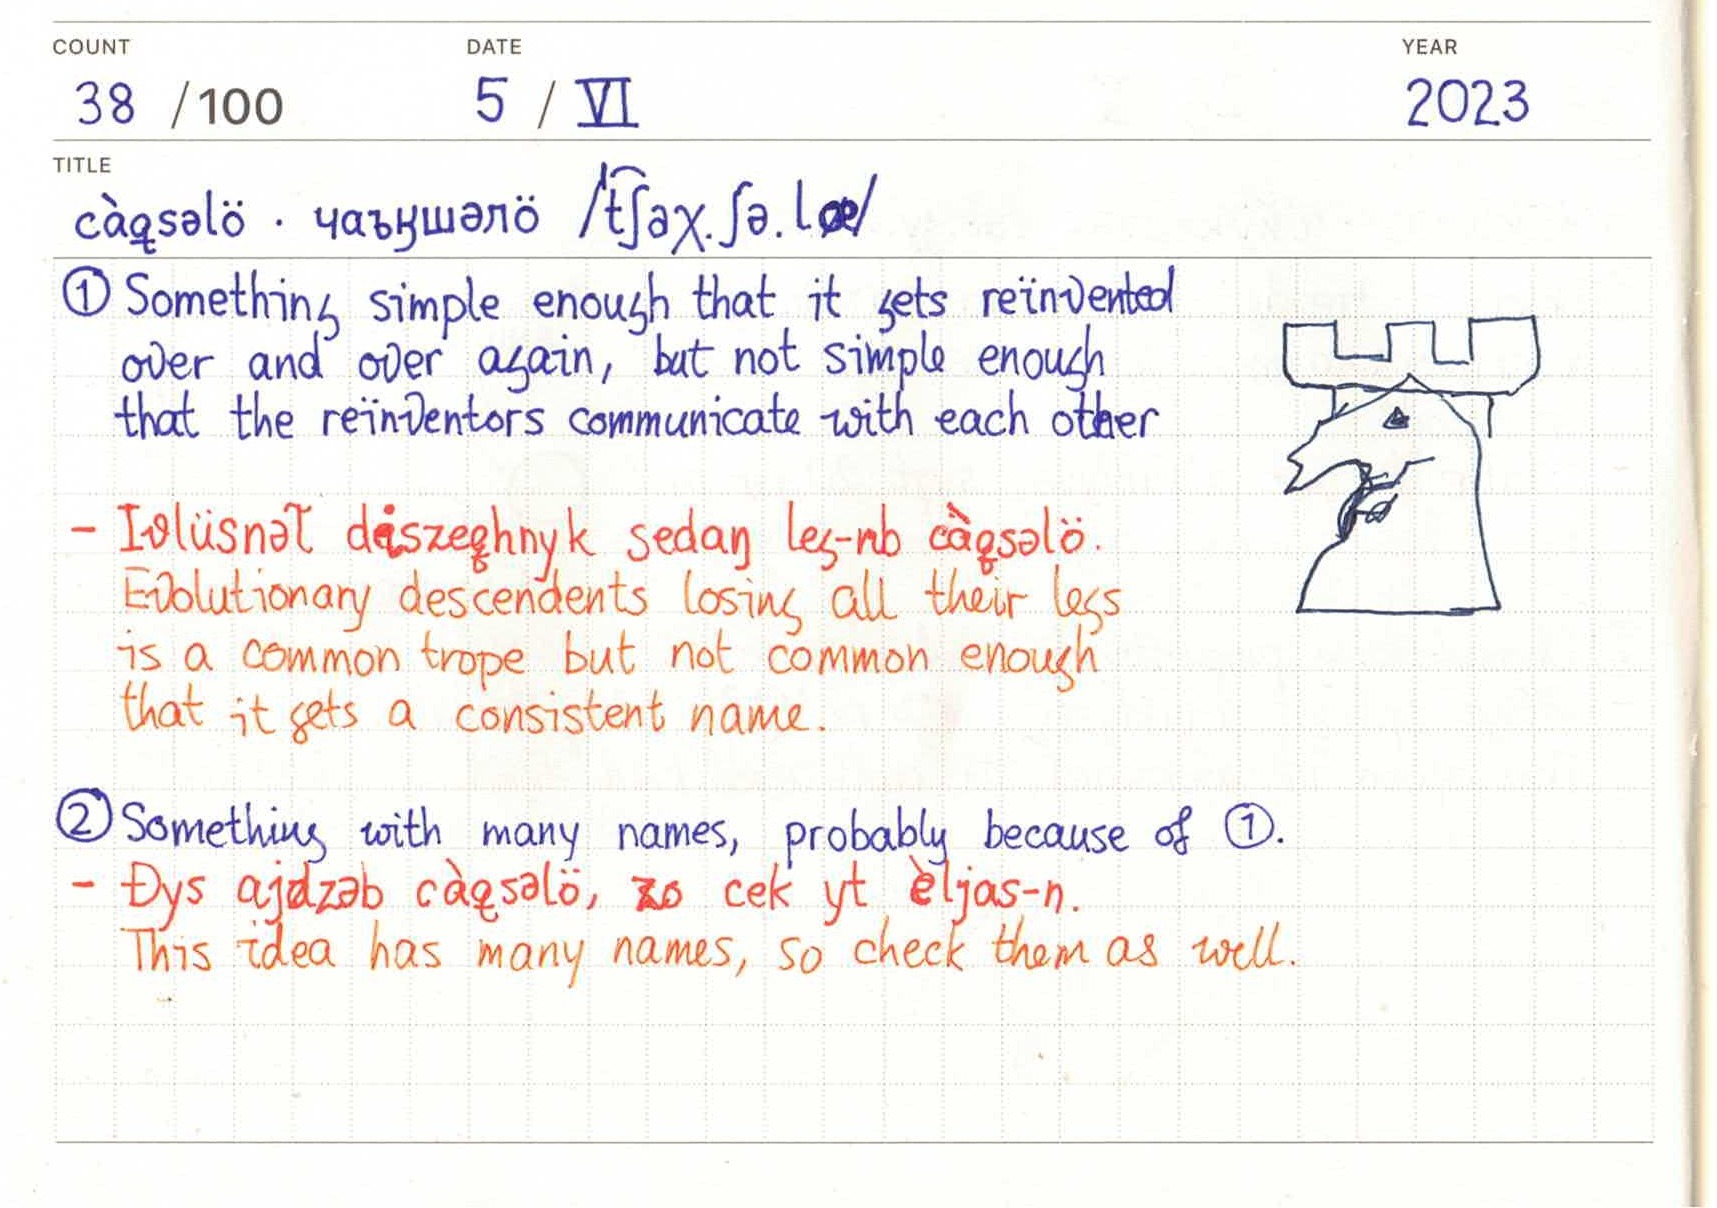 COUNT DATE YEAR
38 /100 5 / VI 2023
TITLE
càqsəlö · чаъӈшəлö /t͡ʃəχ.ʃə.lœ/
① Something simple enough that it gets reïnvented
over and over again, but not simple enough
that the reïnventors communicate with each other
- sedaŋ leg-nb càqsəlö.
Evolutionary descendents losing all their legs
is a common trope but not common enough
that it gets a consistent name.
② Something with many names, probably because of ①.
- Đys ajdzəb càqsəlö, zo cek yt èljas-n.
This idea has many names, so check them as well.